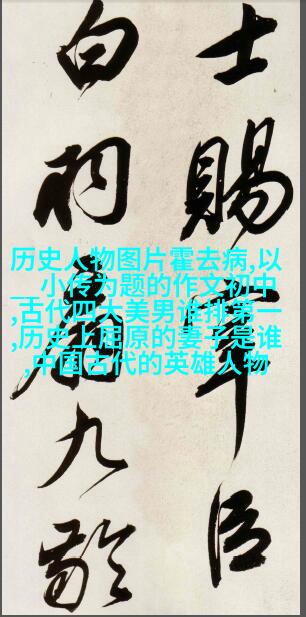 士賜宰臣
白羽扇九齡
历史人物图片霍去病,以
__小传为题的作文初中
,古代四大美男谁排第一
,历史上屈原的妻子是谁
,中国古代的英雄人物